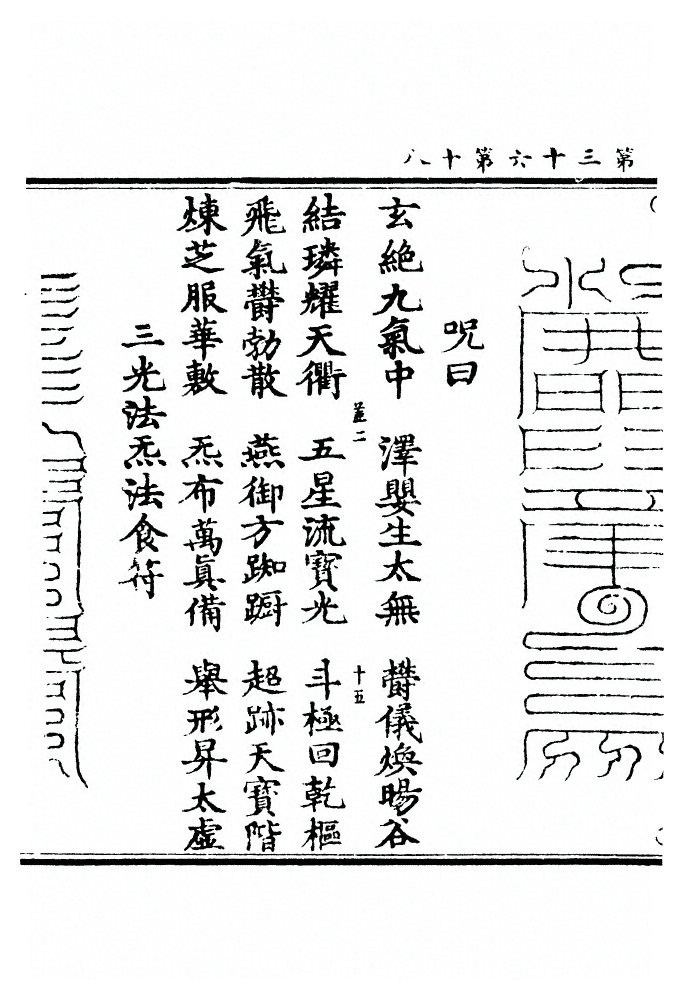 第三十六第十八
呪曰
玄絶九氣中　澤嬰生太無　欝儀煥暘谷
益二　十五
結璘耀天衢　五星流寶光　斗極回乾樞
飛氣欝勃散　燕御方踟蹰　超跡天寶階
煉芝服華敷　炁布萬眞備　舉形昇太虛
三光法炁法食符